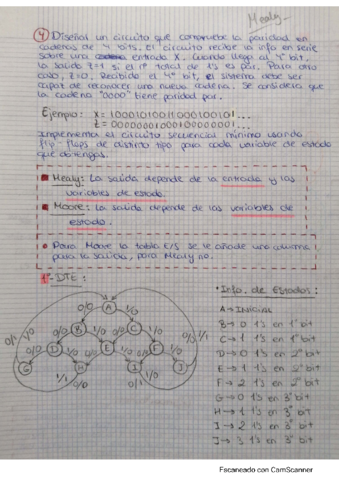 Mealy
4 Diseñal un circuito que compruebe la paridad en
cadenas de 4 bits. El circuito recibe la info en serie
sobre una entrada X. Cuando llega al 4º bit,
la salida z=1 si el nº total de 1's es par. Para otro
caso, z=0. Recibido el 4º bit, el sistema debe ser
capaz de reconocer una nueva cadena. Se considera que
la cadena "0000" tiene paridad par.
Ejemplo:
Implementa el circuito secuencial mínimo usando
flip-flops de distinto tipo para cada variable de estado
que obtengas.
Mealy: La salida depende de la entrada y las
variables de estado.
Moore: La salida depende de las variables de
estado.
Para Moore la tabla E/S se le añade una columna
para la salida, para Mealy no.
1º-DTE:
Info. de Estados:
A→ INICIAL
B→ 0 1's en 1º bit
C→ 1 1's en 1º bit
D→ 0 1's en 2º bit
E→ 1 1's en 2º bit
F→ 2 1's en 2º bit
G→ 0 1's en 3º bit
H→ 1 1's en 3º bit
I→ 2 1's en 3º bit
J→ 3 1's en 3º bit
A
0/0 1/0
B C
0/0 1/0 0/0 1/0
D E F
G H I J
Escaneado con CamScanner